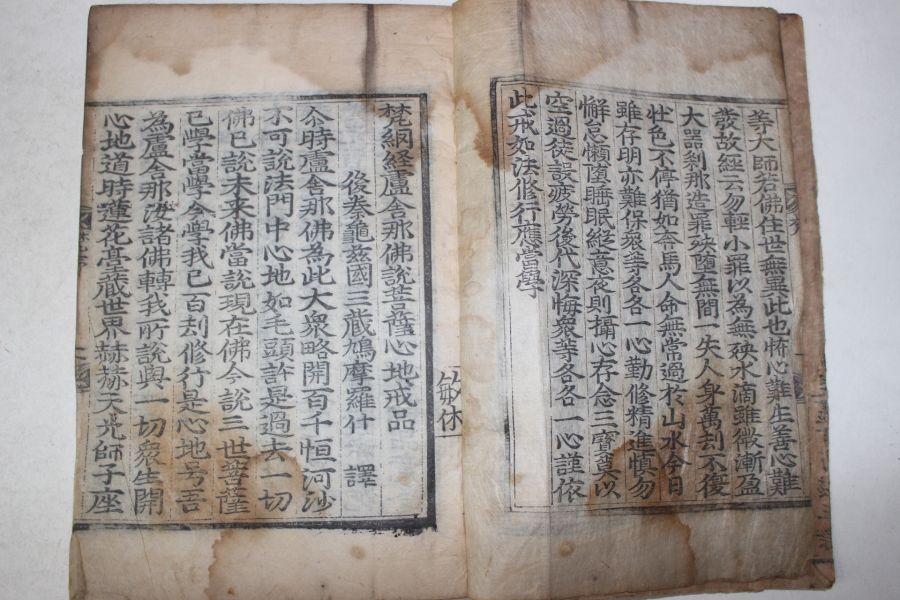 等大師若佛住世無異此也怖心難生善心難
發故經云勿輕小罪以為無殃水滴雖微漸盈
大器剎那造罪殃墮無間一失人身萬刧不復
壯色不停猶如奔馬人命無常過於山水今日
雖存明亦難保衆等各各一心勤修精進慎勿
懈怠懶墮睡眠縱意夜則攝心存念三寶莫以
空過徒設疲勞後代深悔衆等各各一心謹依
此戒如法修行應當學
梵網経盧舍那佛說菩薩心地戒品
後秦龜兹國三藏鳩摩羅什 譯
尒時盧舍那佛為此大衆略開百千恒河沙
不可說法門中心地如毛頭許是過去一切
佛已說未来佛當說現在佛今說三世菩薩
已學當學今學我已百刧修行是心地号吾
為盧舍那汝諸佛轉我所說與一切衆生開
心地道時蓮花臺藏世界赫赫天光師子座